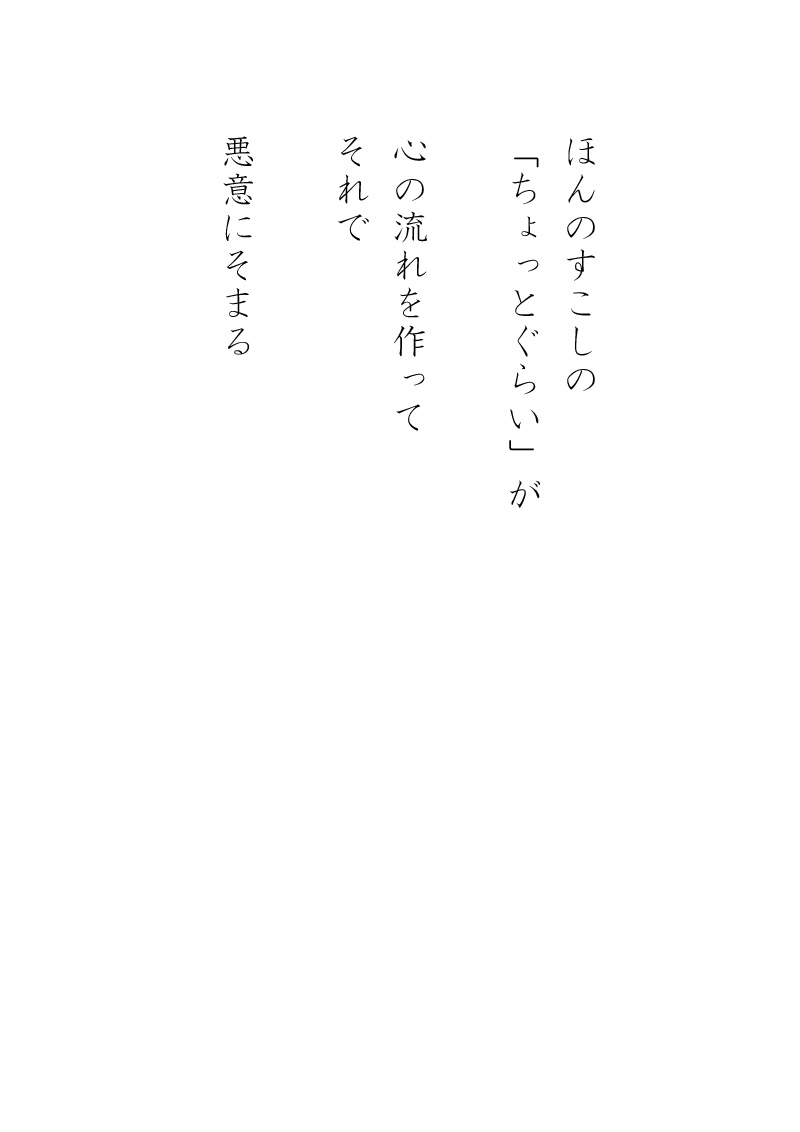 ほんのすこしの
「ちょっとぐらい」が
心の流れを作って
それで
悪意にそまる